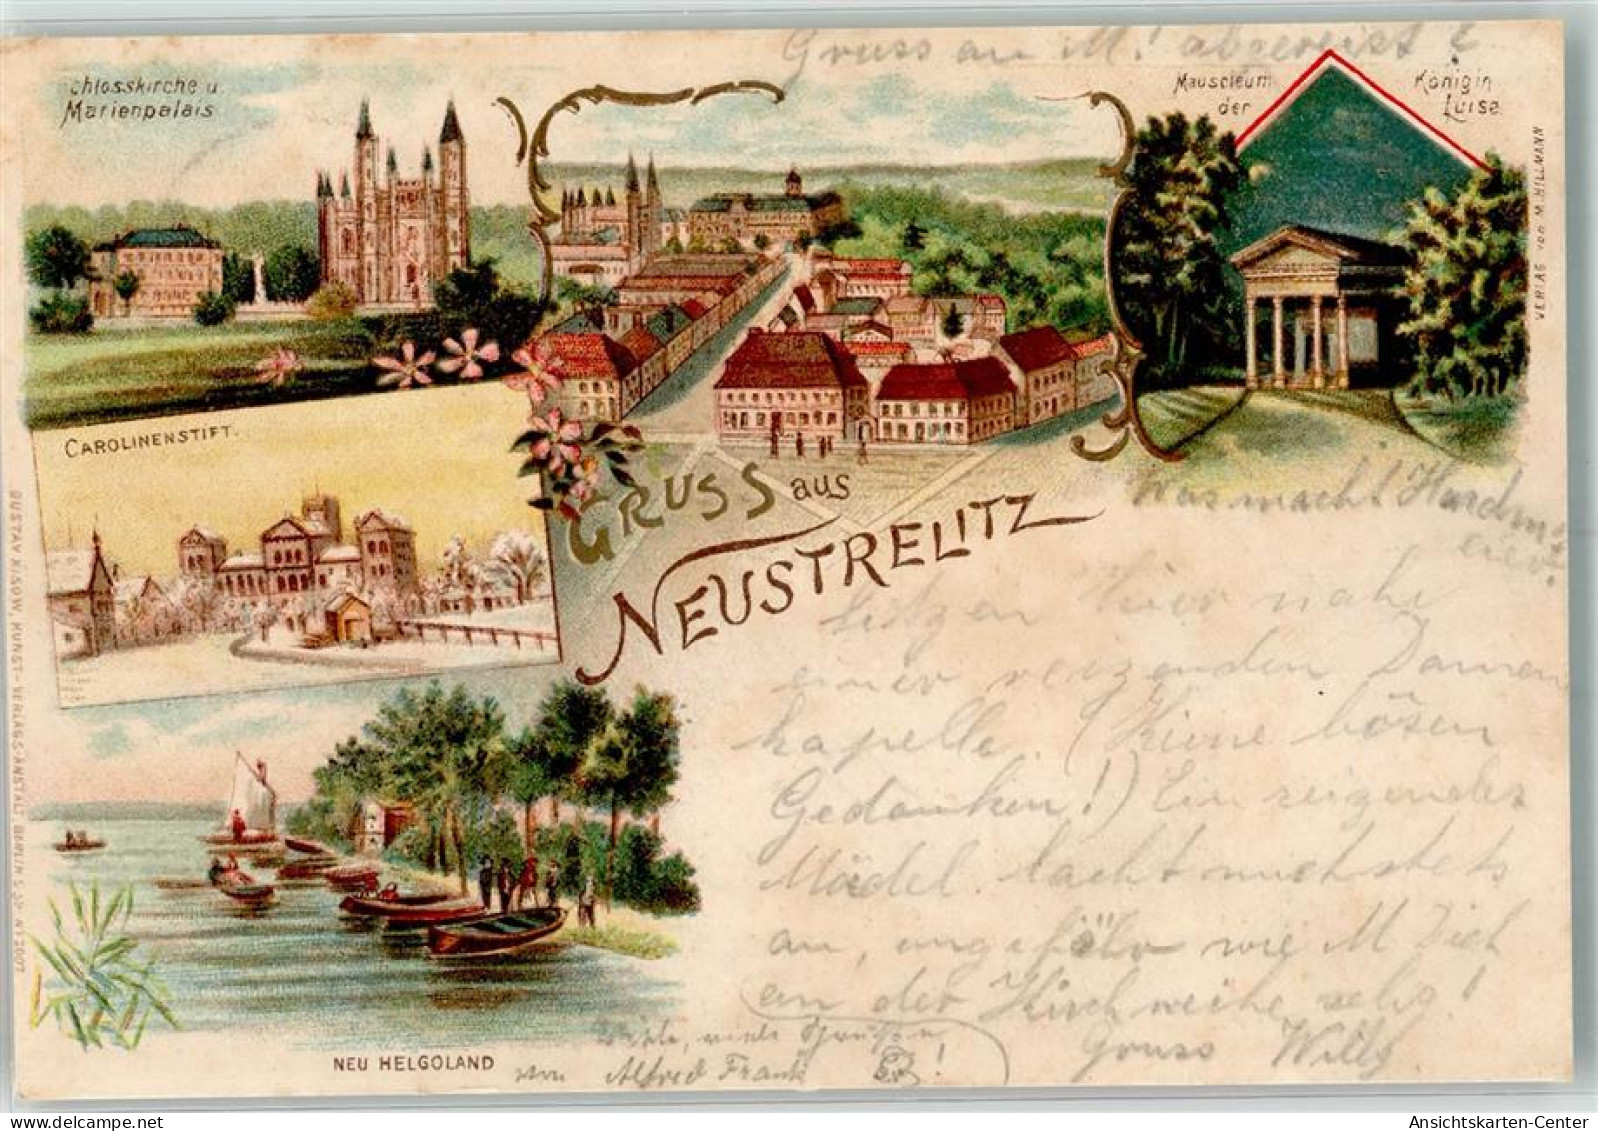 Gruss an M! abgereist?
chlosskirche u.
Marienpalais
Mausoleum Königin
der Luise
VERLAG von M. HILLMANN
CAROLINENSTIFT.
GRUSS aus
NEUSTRELITZ
GUSTAV KISOW, KUNST-VERLAGS-ANSTALT BERLIN S. 59. N. 2007
NEU HELGOLAND
Was macht
sitzen hier nahe
einer reizenden Damen
kapelle. (Keine bösen
Gedanken!) Ein reizendes
Mädel. lacht mich stets
an, ungefähr wie M Dich
an der Kirchweihe sehr!
Gruss Willy
von Alfred Frank
Ansichtskarten-Center